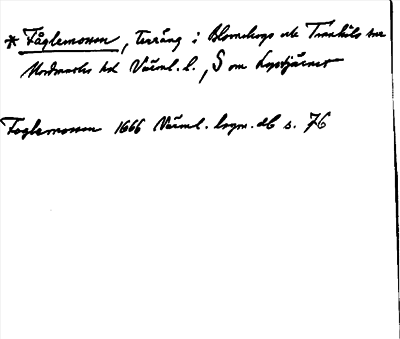 * Fåglemossen, terräng i Blomskogs sn Trankils sn
Nordmarks hd Värml. l., S om Lopptjärnet
Foglemossen 1666 Värml. lsgm. db s. 76